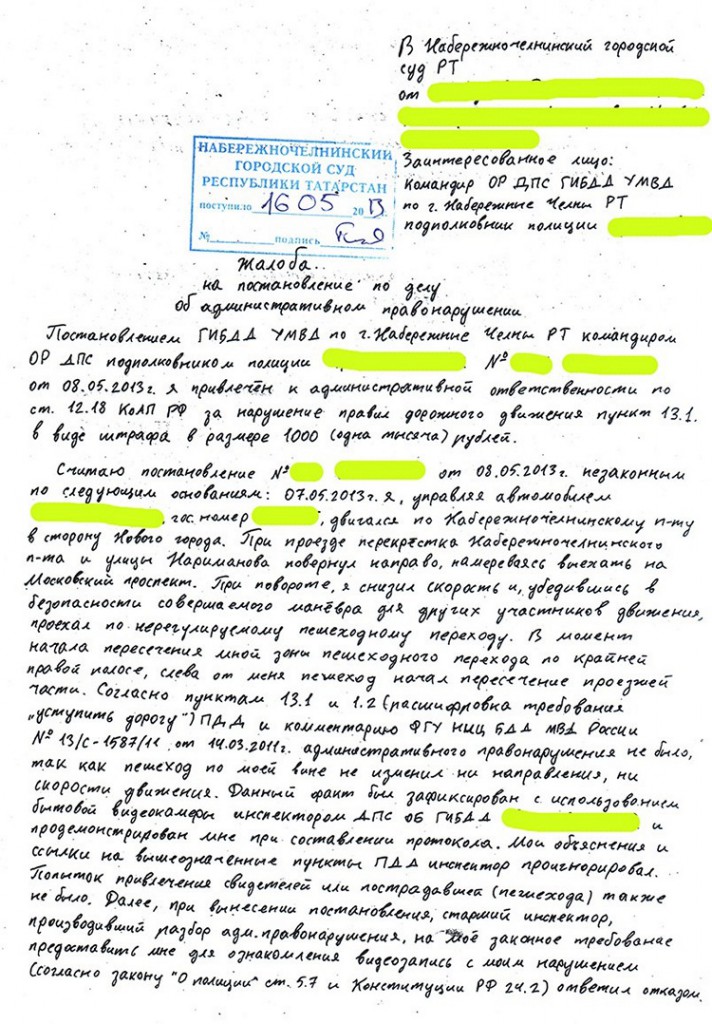 В Набережночелнинский городской
суд РТ
от
Заинтересованное лицо:
командир ОР ДПС ГИБДД УМВД
по г. Набережные Челны РТ
подполковник полиции
НАБЕРЕЖНОЧЕЛНИНСКИЙ
ГОРОДСКОЙ СУД
РЕСПУБЛИКИ ТАТАРСТАН
поступило 16 05 2013
№ подпись
Жалоба
на постановление по делу
об административном правонарушении.
Постановлением ГИБДД УМВД по г. Набережные Челны РТ командиром
ОР ДПС подполковником полиции №
от 08.05.2013г. я привлечён к административной ответственности по
ст. 12.18 КоАП РФ за нарушение правил дорожного движения пункт 13.1.
в виде штрафа в размере 1000 (одна тысяча) рублей.
Считаю постановление № от 08.05.2013г. незаконным
по следующим основаниям: 07.05.2013г. я, управляя автомобилем
, гос. номер , двигался по Набережночелнинскому п-ту
в сторону Нового города. При проезде перекрестка Набережночелнинского
п-та и улицы Нариманова повернул направо, намереваясь выехать на
Московский проспект. При повороте, я снизил скорость и, убедившись в
безопасности совершаемого манёвра для других участников движения,
проехал по нерегулируемому пешеходному переходу. В момент
начала пересечения мной зоны пешеходного перехода по крайней
правой полосе, слева от меня пешеход начал пересечение проезжей
части. Согласно пунктам 13.1 и 1.2 (расшифровка требования
„уступить дорогу") ПДД и комментарию ФГУ НИЦ БДД МВД России
№ 13/с-1587/11 от 14.03.2011г. административного правонарушения не было,
так как пешеход по моей вине не изменил ни направления, ни
скорости движения. Данный факт был зафиксирован с использованием
бытовой видеокамеры инспектором ДПС ОБ ГИБДД и
продемонстрирован мне при составлении протокола. Мои объяснения и
ссылки на вышеозначенные пункты ПДД инспектор проигнорировал.
Попыток привлечения свидетелей или пострадавшего (пешехода) также
не было. Далее, при вынесении постановления, старший инспектор,
производивший разбор адм. правонарушения, на моё законное требование
предоставить мне для ознакомления видеозапись с моим нарушением
(согласно закону "О полиции" ст. 5.7 и Конституции РФ 24.2) ответил отказом.